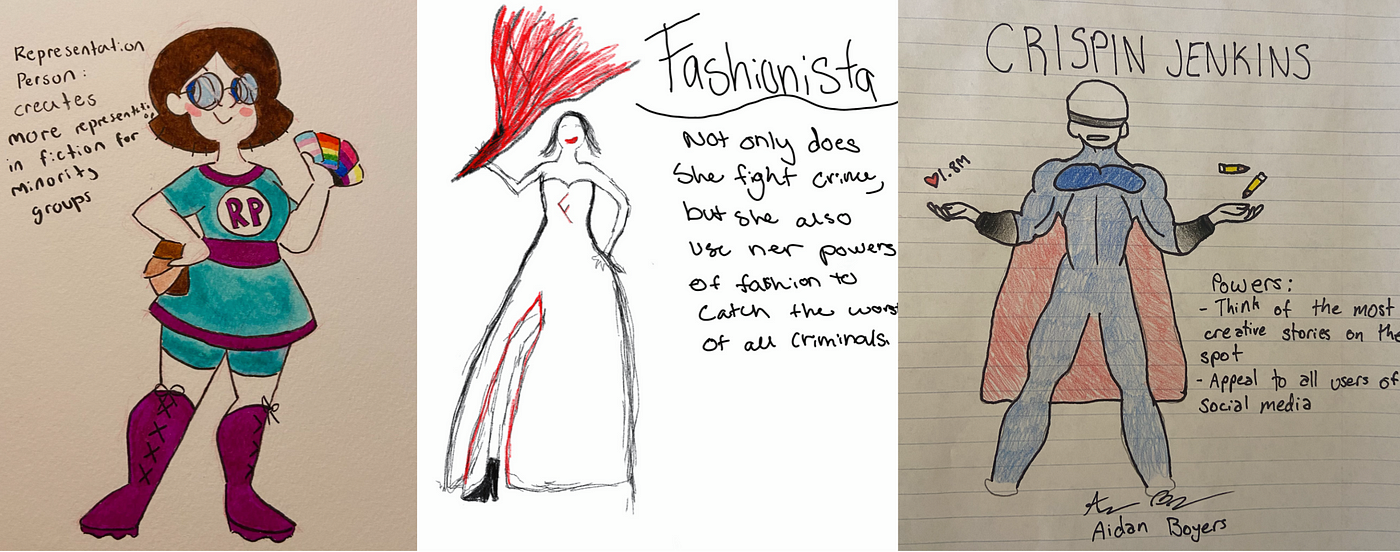 Representation
Person:
creates
more representation
in fiction for
minority
groups
RP
Fashionista
Not only does
She fight crime,
but she also
use her powers
of fashion to
catch the worst
of all criminals.
F
CRISPIN JENKINS
1.8M
Powers:
- Think of the most
creative stories on the
spot
- Appeal to all users of
social media
Aidan Boyers